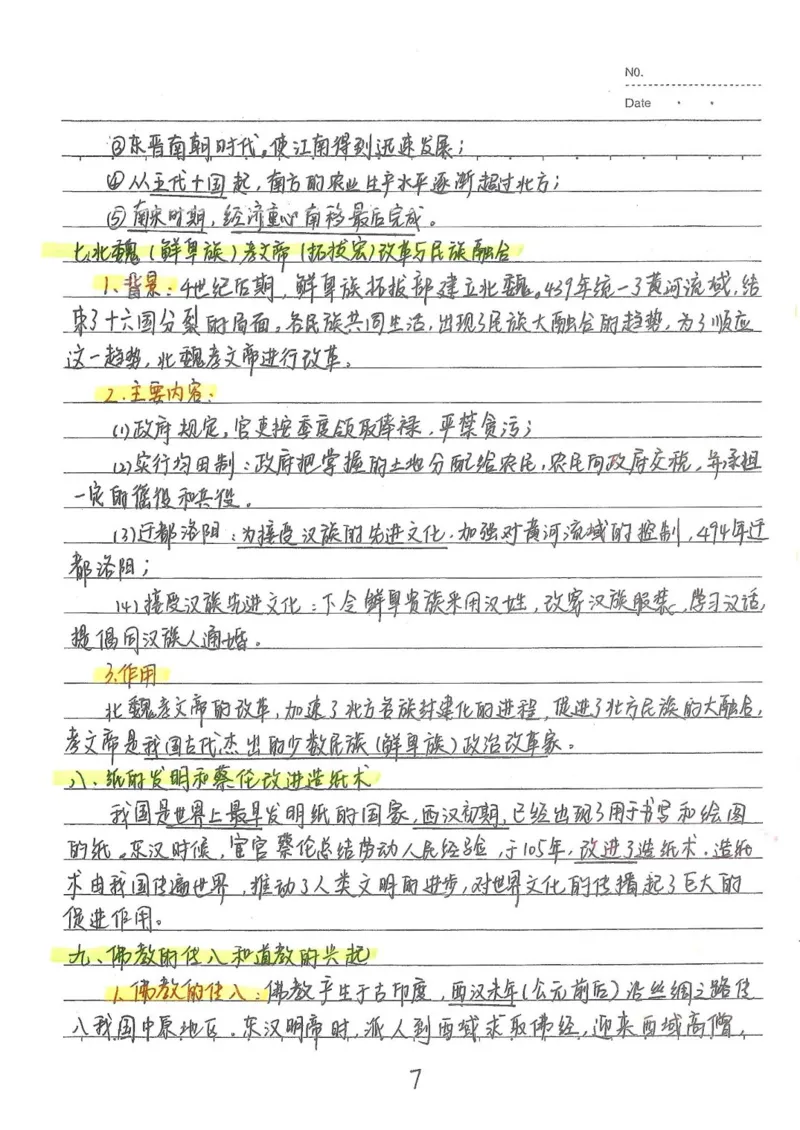 NO.
Date
③东晋南朝时代，使江南得到迅速发展；
④从五代十国起，南方的农业生产水平逐渐超过北方；
⑤南宋时期，经济重心南移最后完成。
七、北魏(鲜卑族)孝文帝(拓拔宏)改革与民族融合
1、背景：4世纪后期，鲜卑族拓拔部建立北魏。439年统一了黄河流域，结
束了十六国分裂的局面。各民族共同生活，出现了民族大融合的趋势，为了顺应
这一趋势，北魏孝文帝进行改革。
2.主要内容：
(1)政府规定，官吏按季度领取俸禄，严禁贪污；
(2)实行均田制：政府把掌握的土地分配给农民，农民向政府交税，并承担
一定的徭役和兵役。
(3)迁都洛阳：为接受汉族的先进文化，加强对黄河流域的控制，494年迁
都洛阳；
(4)接受汉族先进文化：下令鲜卑贵族采用汉姓，改穿汉族服装，学习汉话，
提倡同汉族人通婚。
3.作用
北魏孝文帝的改革，加速了北方各族封建化的进程，促进了北方民族的大融合，
孝文帝是我国古代杰出的少数民族(鲜卑族)政治改革家。
八、纸的发明和蔡伦改进造纸术
我国是世界上最早发明纸的国家，西汉初期，已经出现了用于书写和绘图
的纸。东汉时候，宦官蔡伦总结劳动人民经验，于105年，改进了造纸术，造纸
术由我国传遍世界，推动了人类文明的进步，对世界文化的传播起了巨大的
促进作用。
九、佛教的传入和道教的兴起
1.佛教的传入：佛教产生于古印度，西汉末年(公元前后)沿丝绸之路传
入我国中原地区。东汉明帝时，派人到西域求取佛经，迎来西域高僧，
7